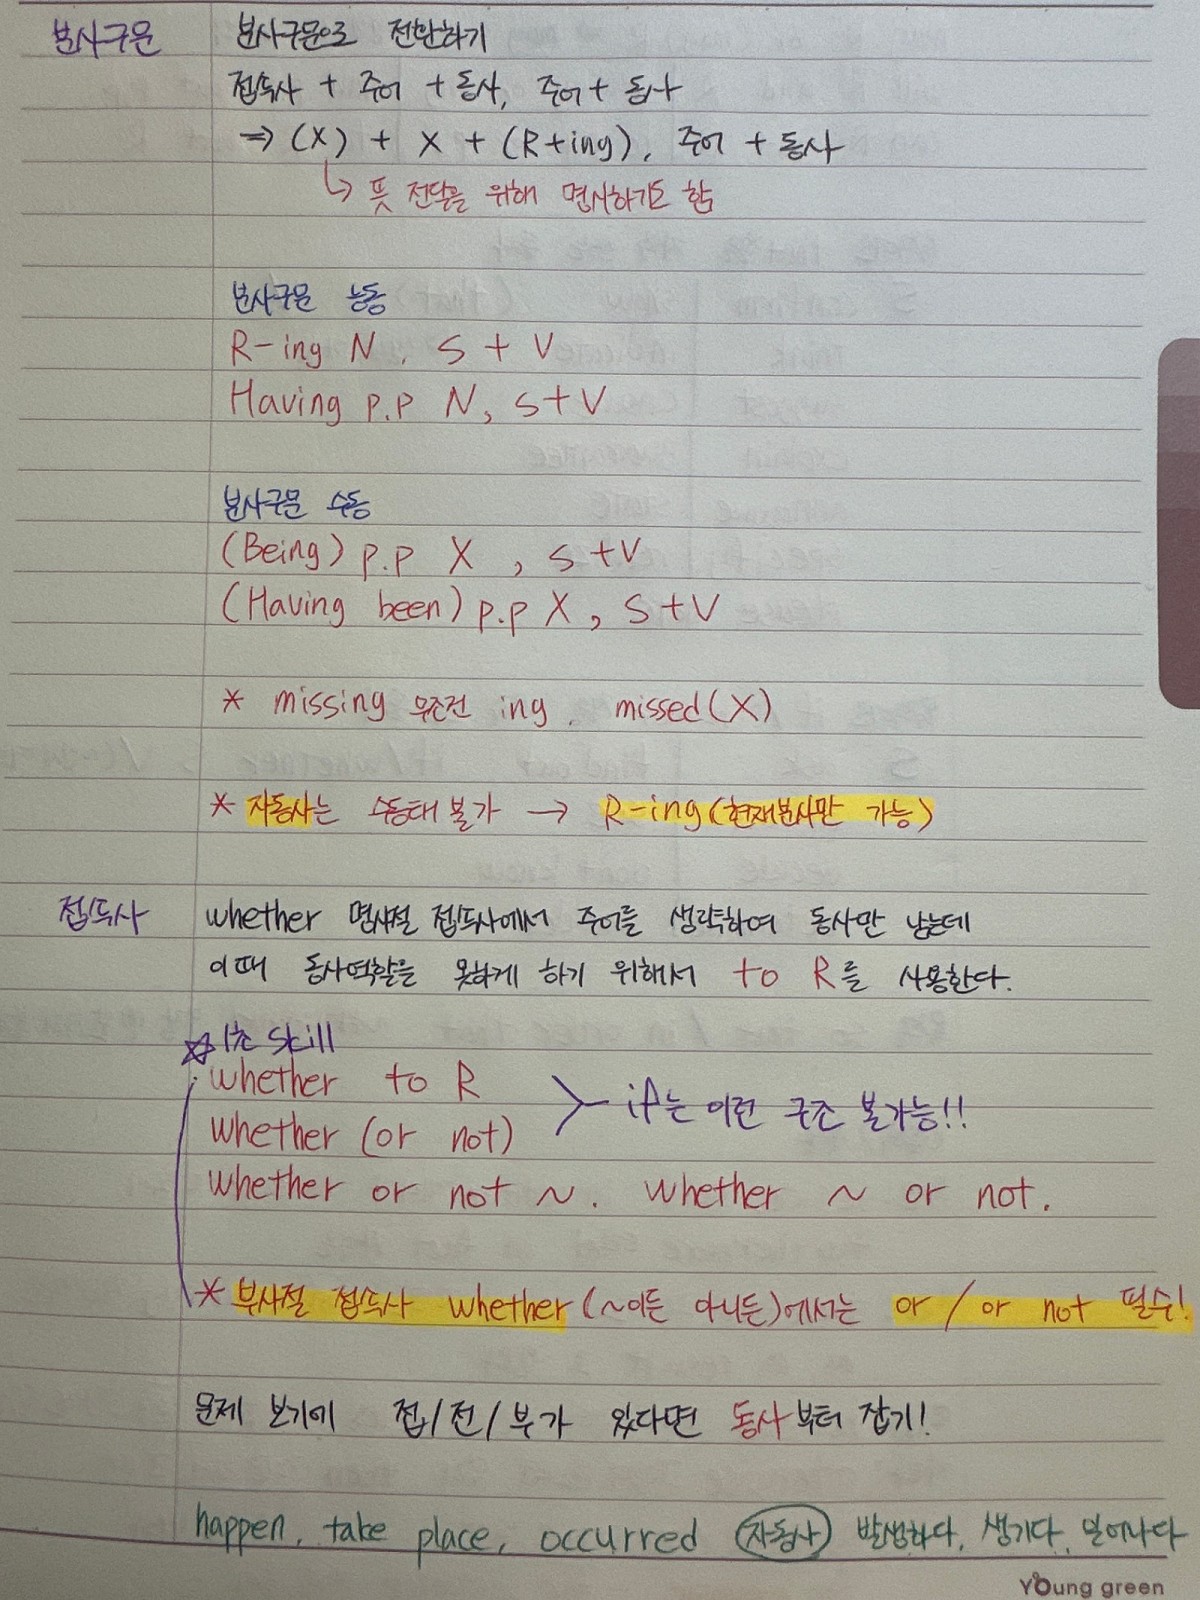 분사구문
분사구문으로 전환하기
접속사 + 주어 + 동사, 주어 + 동사
⇒ (X) + X + (R+ing), 주어 + 동사
↳ 뜻 전달을 위해 명시하기도 함
분사구문 능동
R-ing N, S + V
Having p.p N, S+V
분사구문 수동
(Being) p.p X, S+V
(Having been) p.p X, S+V
* missing 무조건 ing, missed(X)
* 자동사는 수동태 불가 → R-ing(현재분사만 가능)
접속사
whether 명사절 접속사에서 주어를 생략하여 동사만 남는데
이때 동사역할을 못하게 하기 위해서 to R를 사용한다.
☆ 1초 skill
whether to R
whether (or not)
if는 이런 구조 불가능!!
whether or not ~. whether ~ or not.
* 부사절 접속사 whether(~이든 아니든)에서는 or / or not 필수!
문제 보기에 접/전/부가 있다면 동사부터 잡기!
happen, take place, occurred (자동사) 발생하다, 생기다, 일어나다
Young green